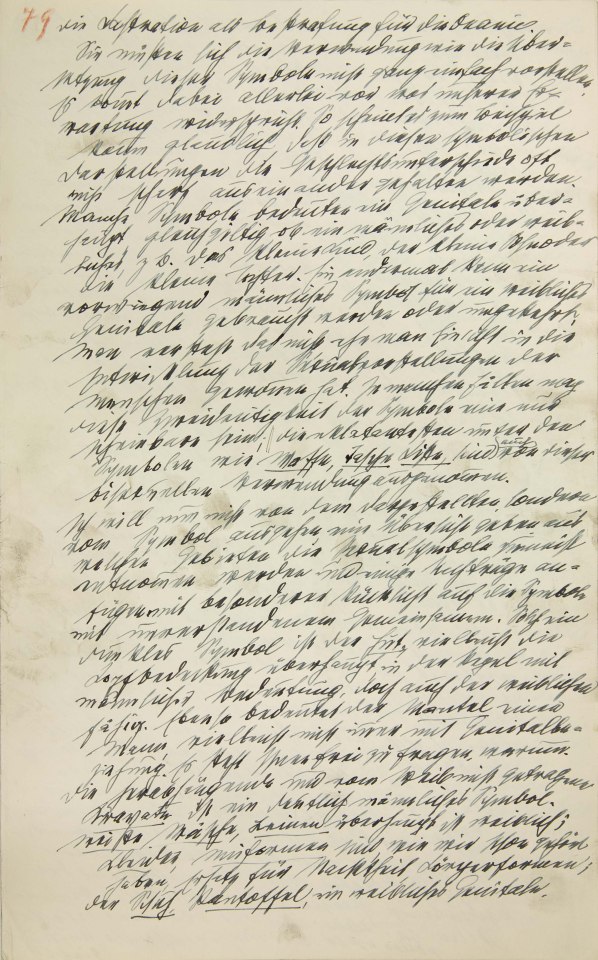 79 die Kastration als Bestrafung für die Onanie.
Sie müssen sich die Verwendung wie die Über-
setzung dieser Symbole nicht ganz einfach vorstellen.
Es komt dabei allerlei vor was unserer Er-
wartung widerspricht. So scheint es zum Beispiel
kaum glaublich, daß in diesen symbolischen
Darstellungen die Geschlechtsunterschiede oft
nicht scharf auseinander gehalten werden.
Manche Symbole bedeuten ein Genitale über-
haupt, gleichgiltig ob ein männliches oder weib-
liches z B. das kleine Kind, der kleine Sohn oder
die kleine Tochter. Ein andermal kann ein
vorwiegend männliches Symbol für ein weibliches
Genitale gebraucht werden oder umgekehrt.
Man versteht das nicht, ehe man Einsicht in die
Entwicklung der Sexualvorstellungen der
Menschen gewonen hat. In manchen Fällen mag
diese Zweideutigkeit der Symbole eine nur
scheinbare sein; die eklatantesten unter den
Symbolen wie Waffe, Tasche Kiste, sind auch von dieser
bisexuellen Verwendung ausgenomen.
Ich will nun nicht von dem Dargestellten, sondern
vom Symbol ausgehen eine Übersicht geben aus
welchen Gebieten die Sexualsymbole zumeist
entnomen werden und einige Nachträge an-
fügen mit besonderer Rücksicht auf die Symbole
mit unverstandenem Gemeinsamen. Solch ein
dunkles Symbol ist der Hut, vielleicht die
Kopfbedeckung überhaupt, in der Regel mit
männlicher Bedeutung, doch auch der weiblichen
fähig. Ebenso bedeutet der Mantel einen
Mann, vielleicht nicht imer mit Genitalbe-
ziehung. Es steht Ihnen frei zu fragen, warum.
Die herabhängende und vom Weib nicht getragene
Kravate ist ein deutlich männliches Symbol.
weiße Wäsche, Leinen überhaupt ist weiblich;
Kleider, Uniformen sind wie wir schon gehört
haben, Ersatz für Nacktheit, Körperformen;
der Schuh, Pantoffel, ein weibliches Genitale.